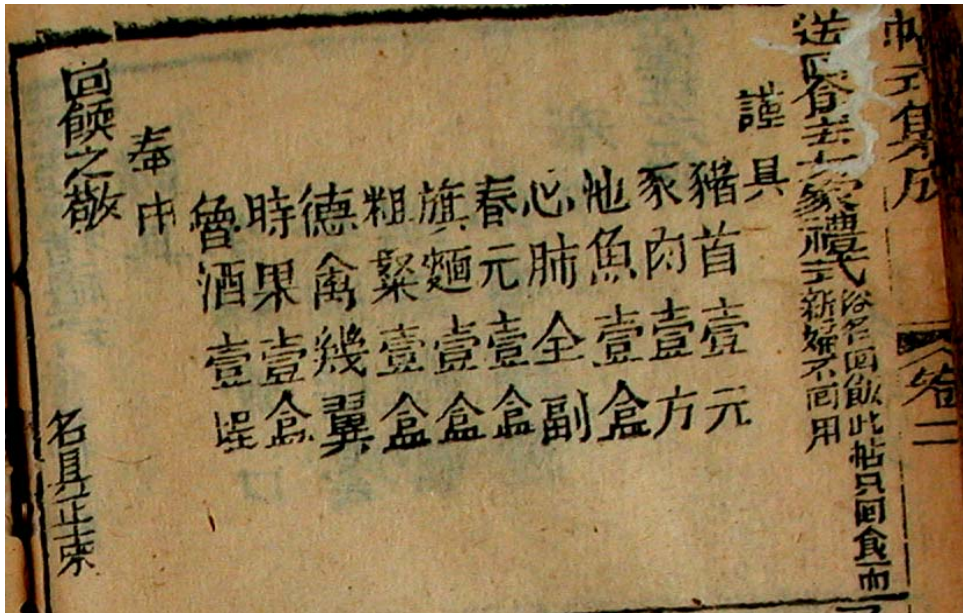 帖式集成 卷二
送回食主大家禮式
俗名回飯此帖只回食而
新婦不回用
謹具
豬首壹元
豕肉壹方
池魚壹盒
心肺全副
春元壹盒
旗麵壹盒
粗粢壹盒
德禽幾翼
時果壹盒
魯酒壹埕
奉申
回餪之敬
名具正柬